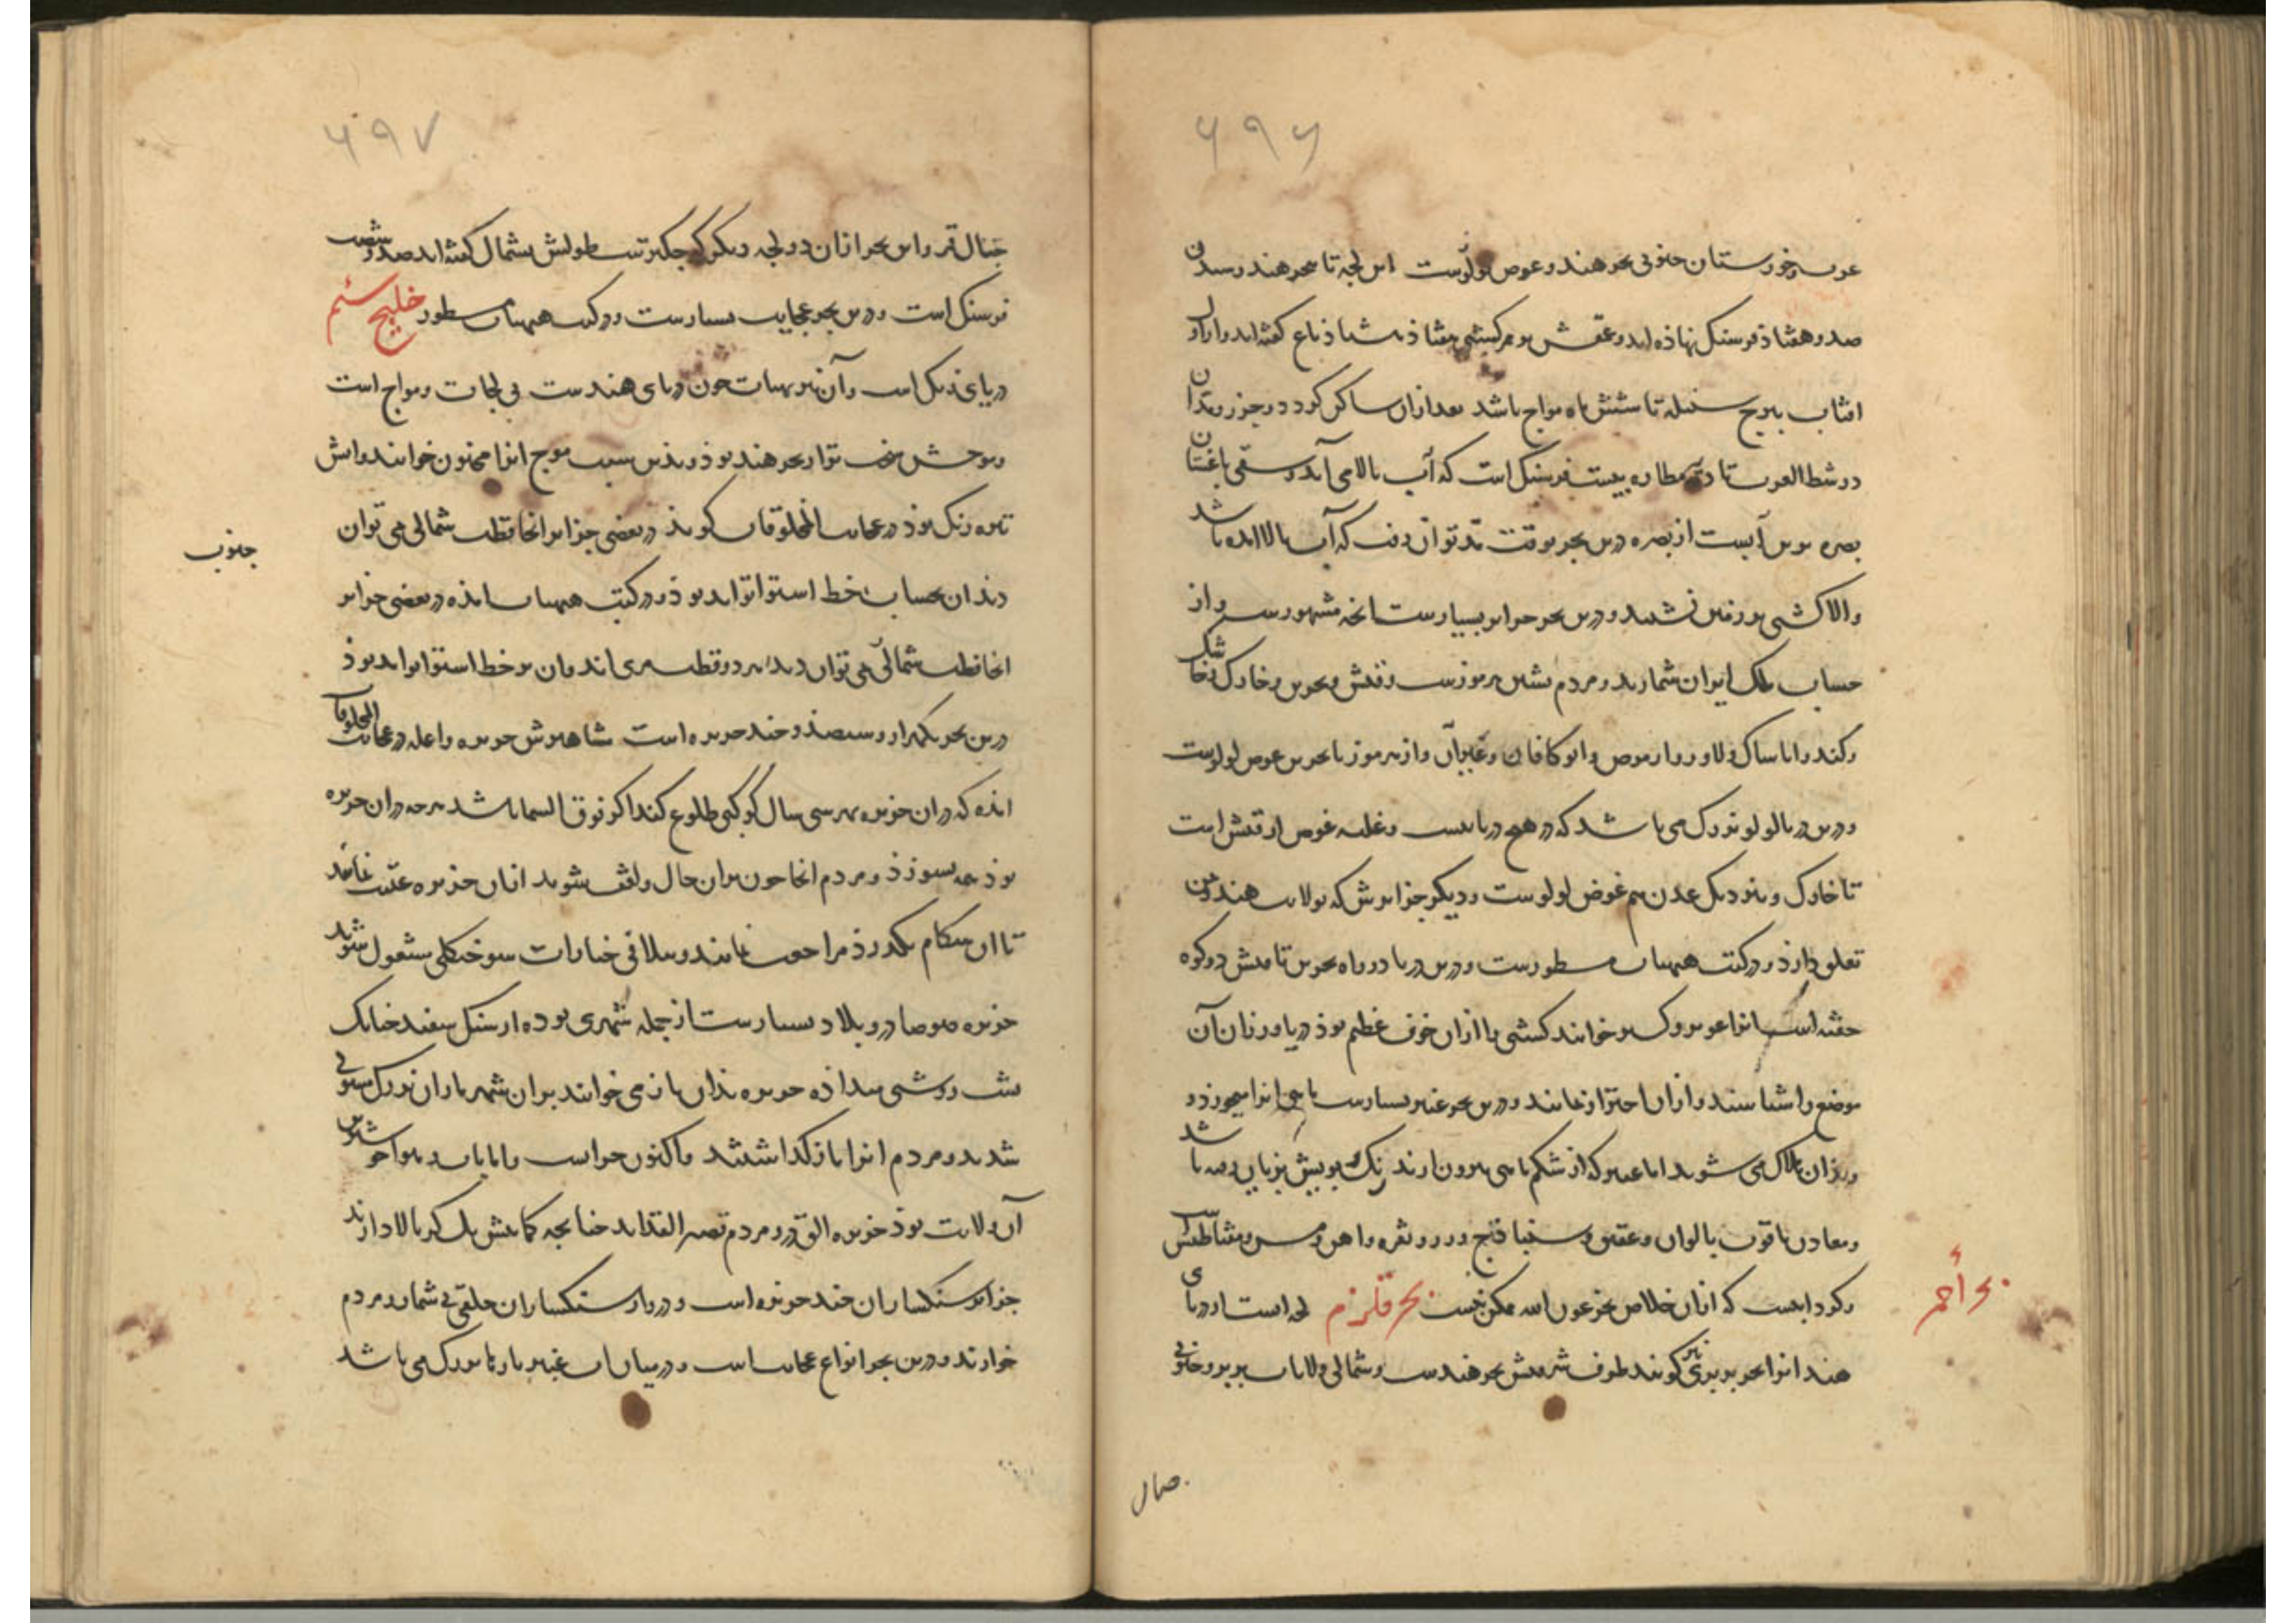 ۶۹۶
عرب و خوزستان جنوبی بحر هند و غوص لولوست این لجه تا بحر هند رسیدن
صد و هفتاذ فرسنگ نهاذه اند و عمقش بر ممر کشتی هفتاذ هشتاذ باع گفته اند و از اول
افتاب ببرج سنبله تا شش ماه مواج باشد بعد ازان ساکن گردد و جزر و مد ان
در شط العرب تا مطاره بیست فرسنگ است که آب بالا می آید و سقی باغستان
بصره برین آبست از بصره درین بحر بوقت مد توان رفت که آب بالا امده باشد
والا کشتی بر زمین نشیند و درین بحر جزایر بسیارست انچه مشهورست و از
حساب ملک ایران شمارند و مردم نشین هرموزست و قیش و بحرین و خارک و خاشک
و کند و اناساک و لاور و ارموص و ابرکافان و غیرآن و از هرموز تا بحرین غوص لولوست
و درین دریا لولو بزرگ می باشد که در هیچ دریا نیست و غلبه غوص از قیش است
تا خارک و بنزدیک عدن هم غوص لولوست و دیگر جزایرش که بولایت هند و یمن
تعلق دارذ در کتب هیهات مسطورست و درین دریا در راه بحرین تا قیش دو کوه
خفته است انرا عویر و کسیر خوانند کشتی را ازان خوف عظیم بوذ دریاورزان آن
موضع را شناسند و ازان احتراز نمایند و درین بحر عنبر بسیارست ماهی انرا میخورذ و
و بذان هلاک می شوند اما عنبر که از شکم ماهی بیرون ارند رنگ و بویش بزیان امده باشد
و معادن یاقوت بالوان و عقیق و سنباذج و زر و نقره و اهن و مس و مغناطیس
و گردابیست که ازان خلاص بجز عون الله ممکن نیست بحر قلزم لجه است از دریای
هند انرا بحر بربری نیز گویند طرف شرقیش بحر هندست و شمالی ولایات بربر و جنوبی
بحر أحمر
جبال
۶۹۷
جبال قمر و این بحر ازان دو لجه دیگر کوچکترست طولش بشمال گفته اند صد و شصت
فرسنگ است و درین بحر عجایب بسیارست و در کتب هیهات مسطور خلیج ششم
دریای زنگ است و آن نیز بهیات چون دریای هندست بی لجات و مواج است
و موجش سخت تر از بحر هند بوذ و بذین سبب موج انرا مجنون خوانند و ابش
تیره رنگ بوذ در عجایب المخلوقات گویذ در بعضی جزایر انجا قطب شمالی می توان
دیذ ان بحساب خط استوا تواند بوذ و در کتب هیهات امذه در بعضی جزایر
انجا قطب شمالی می توان دید هر دو قطب مری اند و ان بر خط استوا تواند بوذ
جنوب
درین بحر یکهزار و سیصذ و چند جزیره است مشاهیرش جزیره واعله در عجایب المخلوقات
امذه که دران جزیره بهر سی سال کوکبی طلوع کند اگر فوق السما باشد هرچه دران جزیره
بوذ همه بسوزذ و مردم انجا چون بران حال واقف شوند ازان جزیره غیبت نمایند
تا ان هنگام بگذرذ مراجعت نمایند و بتلافی خسارات سوختگی مشغول شوند
جزیره ضوضا درو بلاد بسیارست از جمله شهری بوده از سنگ سفید چنانک
شب روشنی میداذه جزیره بذان باز می خوانند بران شهر ماران بزرگ مستولی
شدند و مردم انرا بازگذاشتند و اکنون خرابست و با باب و هوا خوشترین
آن ولایت بوذ جزیره القرود مردم قصیر القد اند چنانچه کمابیش یک گز بالا دارند
جزایر سنگساران چند جزیره است و درو از سنگساران خلقی بی شمار و مردم
خوارند و درین بحر انواع عجایب است و در میان آب عنبر بارها بزرگ می باشد